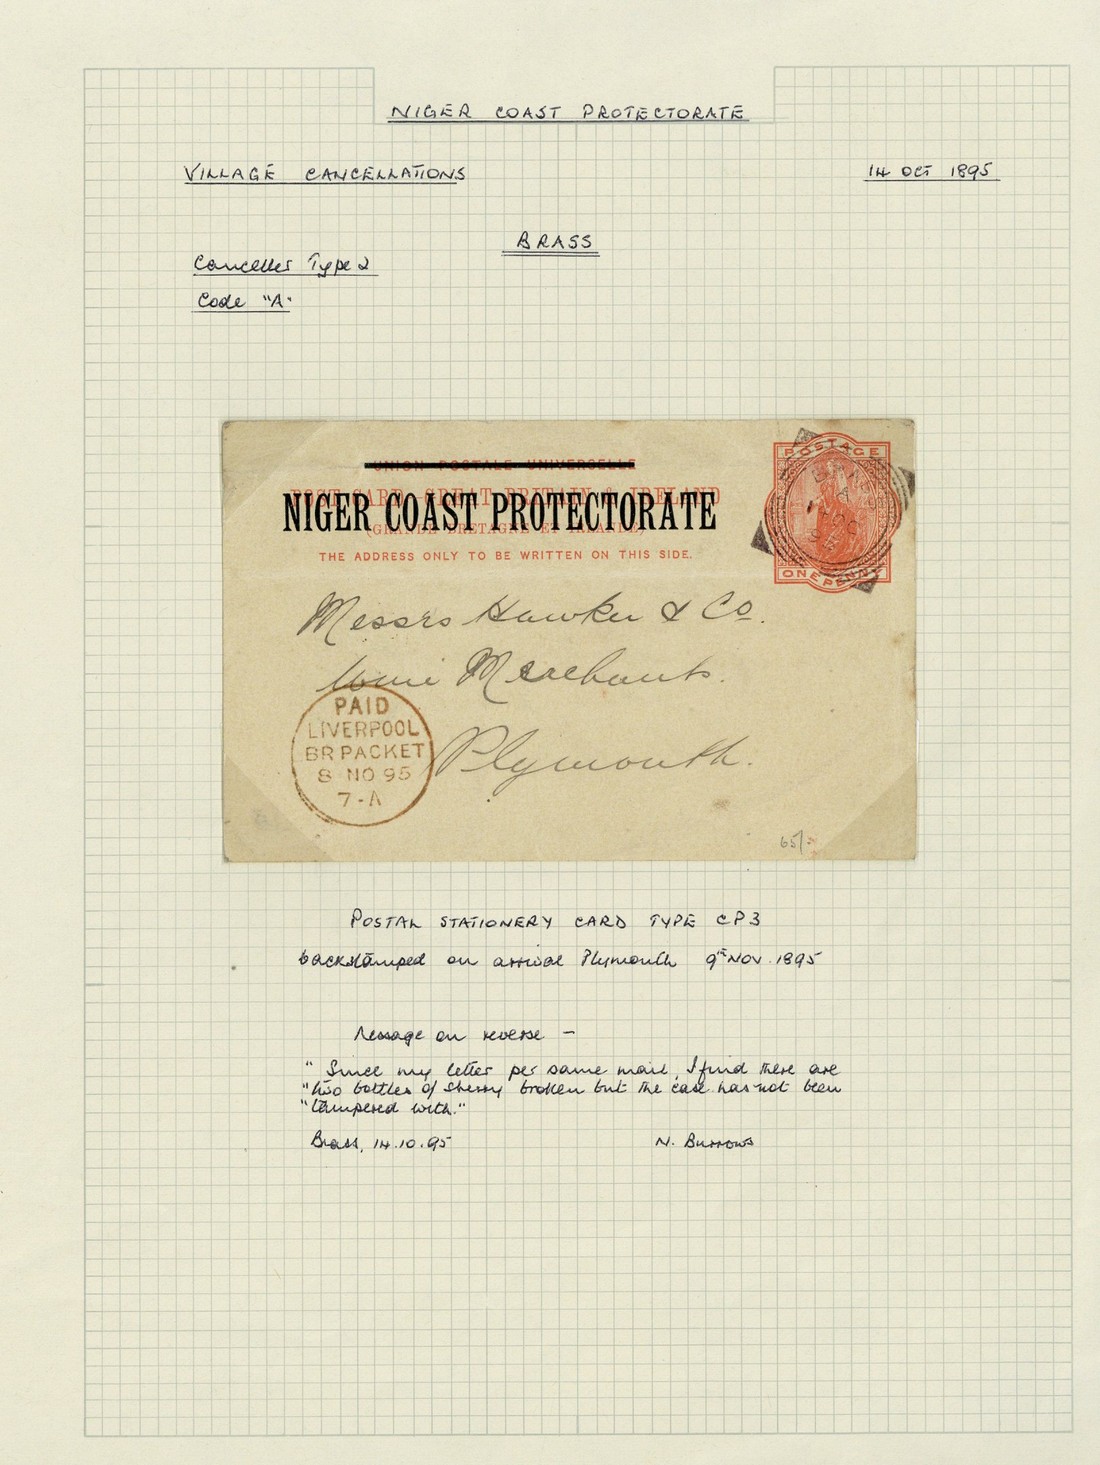 NIGER COAST PROTECTORATE
VILLAGE CANCELLATIONS
14 OCT 1895
BRASS
Canceller Type 2
Code "A"
UNION POSTALE UNIVERSELLE
POST CARD. GREAT BRITAIN & IRELAND
NIGER COAST PROTECTORATE
(GRANDE BRETAGNE ET IRLANDE)
THE ADDRESS ONLY TO BE WRITTEN ON THIS SIDE.
POSTAGE
BRASS
A
OC
95
ONE PENNY
Messrs Hawker & Co.
Wine Merchants.
Plymouth.
PAID
LIVERPOOL
BR PACKET
8 NO 95
7-A
65/-
POSTAL STATIONERY CARD TYPE CP3
backstamped on arrival Plymouth 9th NOV. 1895
Message on reverse -
" Since my letter per same mail, I find there are
"two bottles of sherry broken but the case has not been
"tampered with."
Brass, 14.10.95
N. Burrows